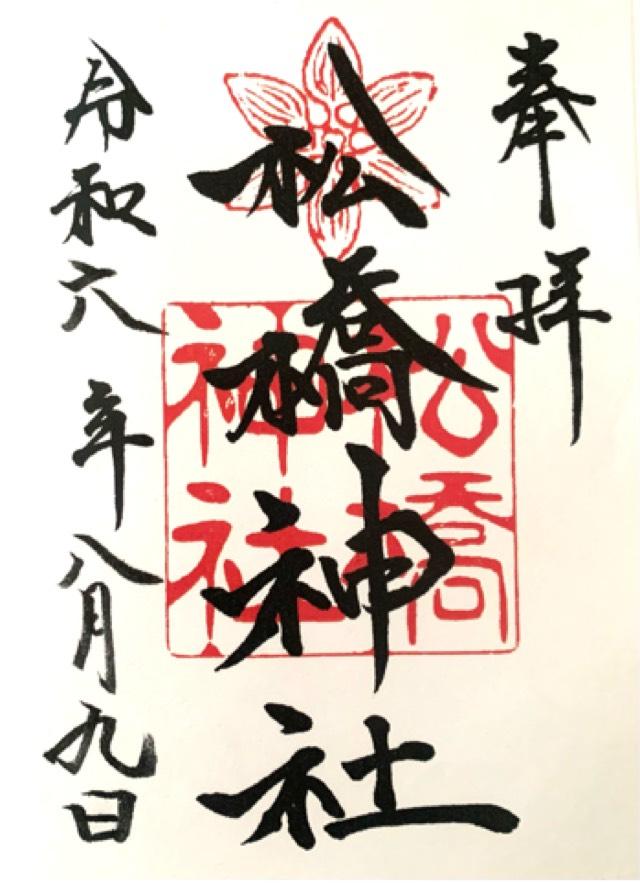 奉拝
松橋神社
松橋神社
令和六年八月九日